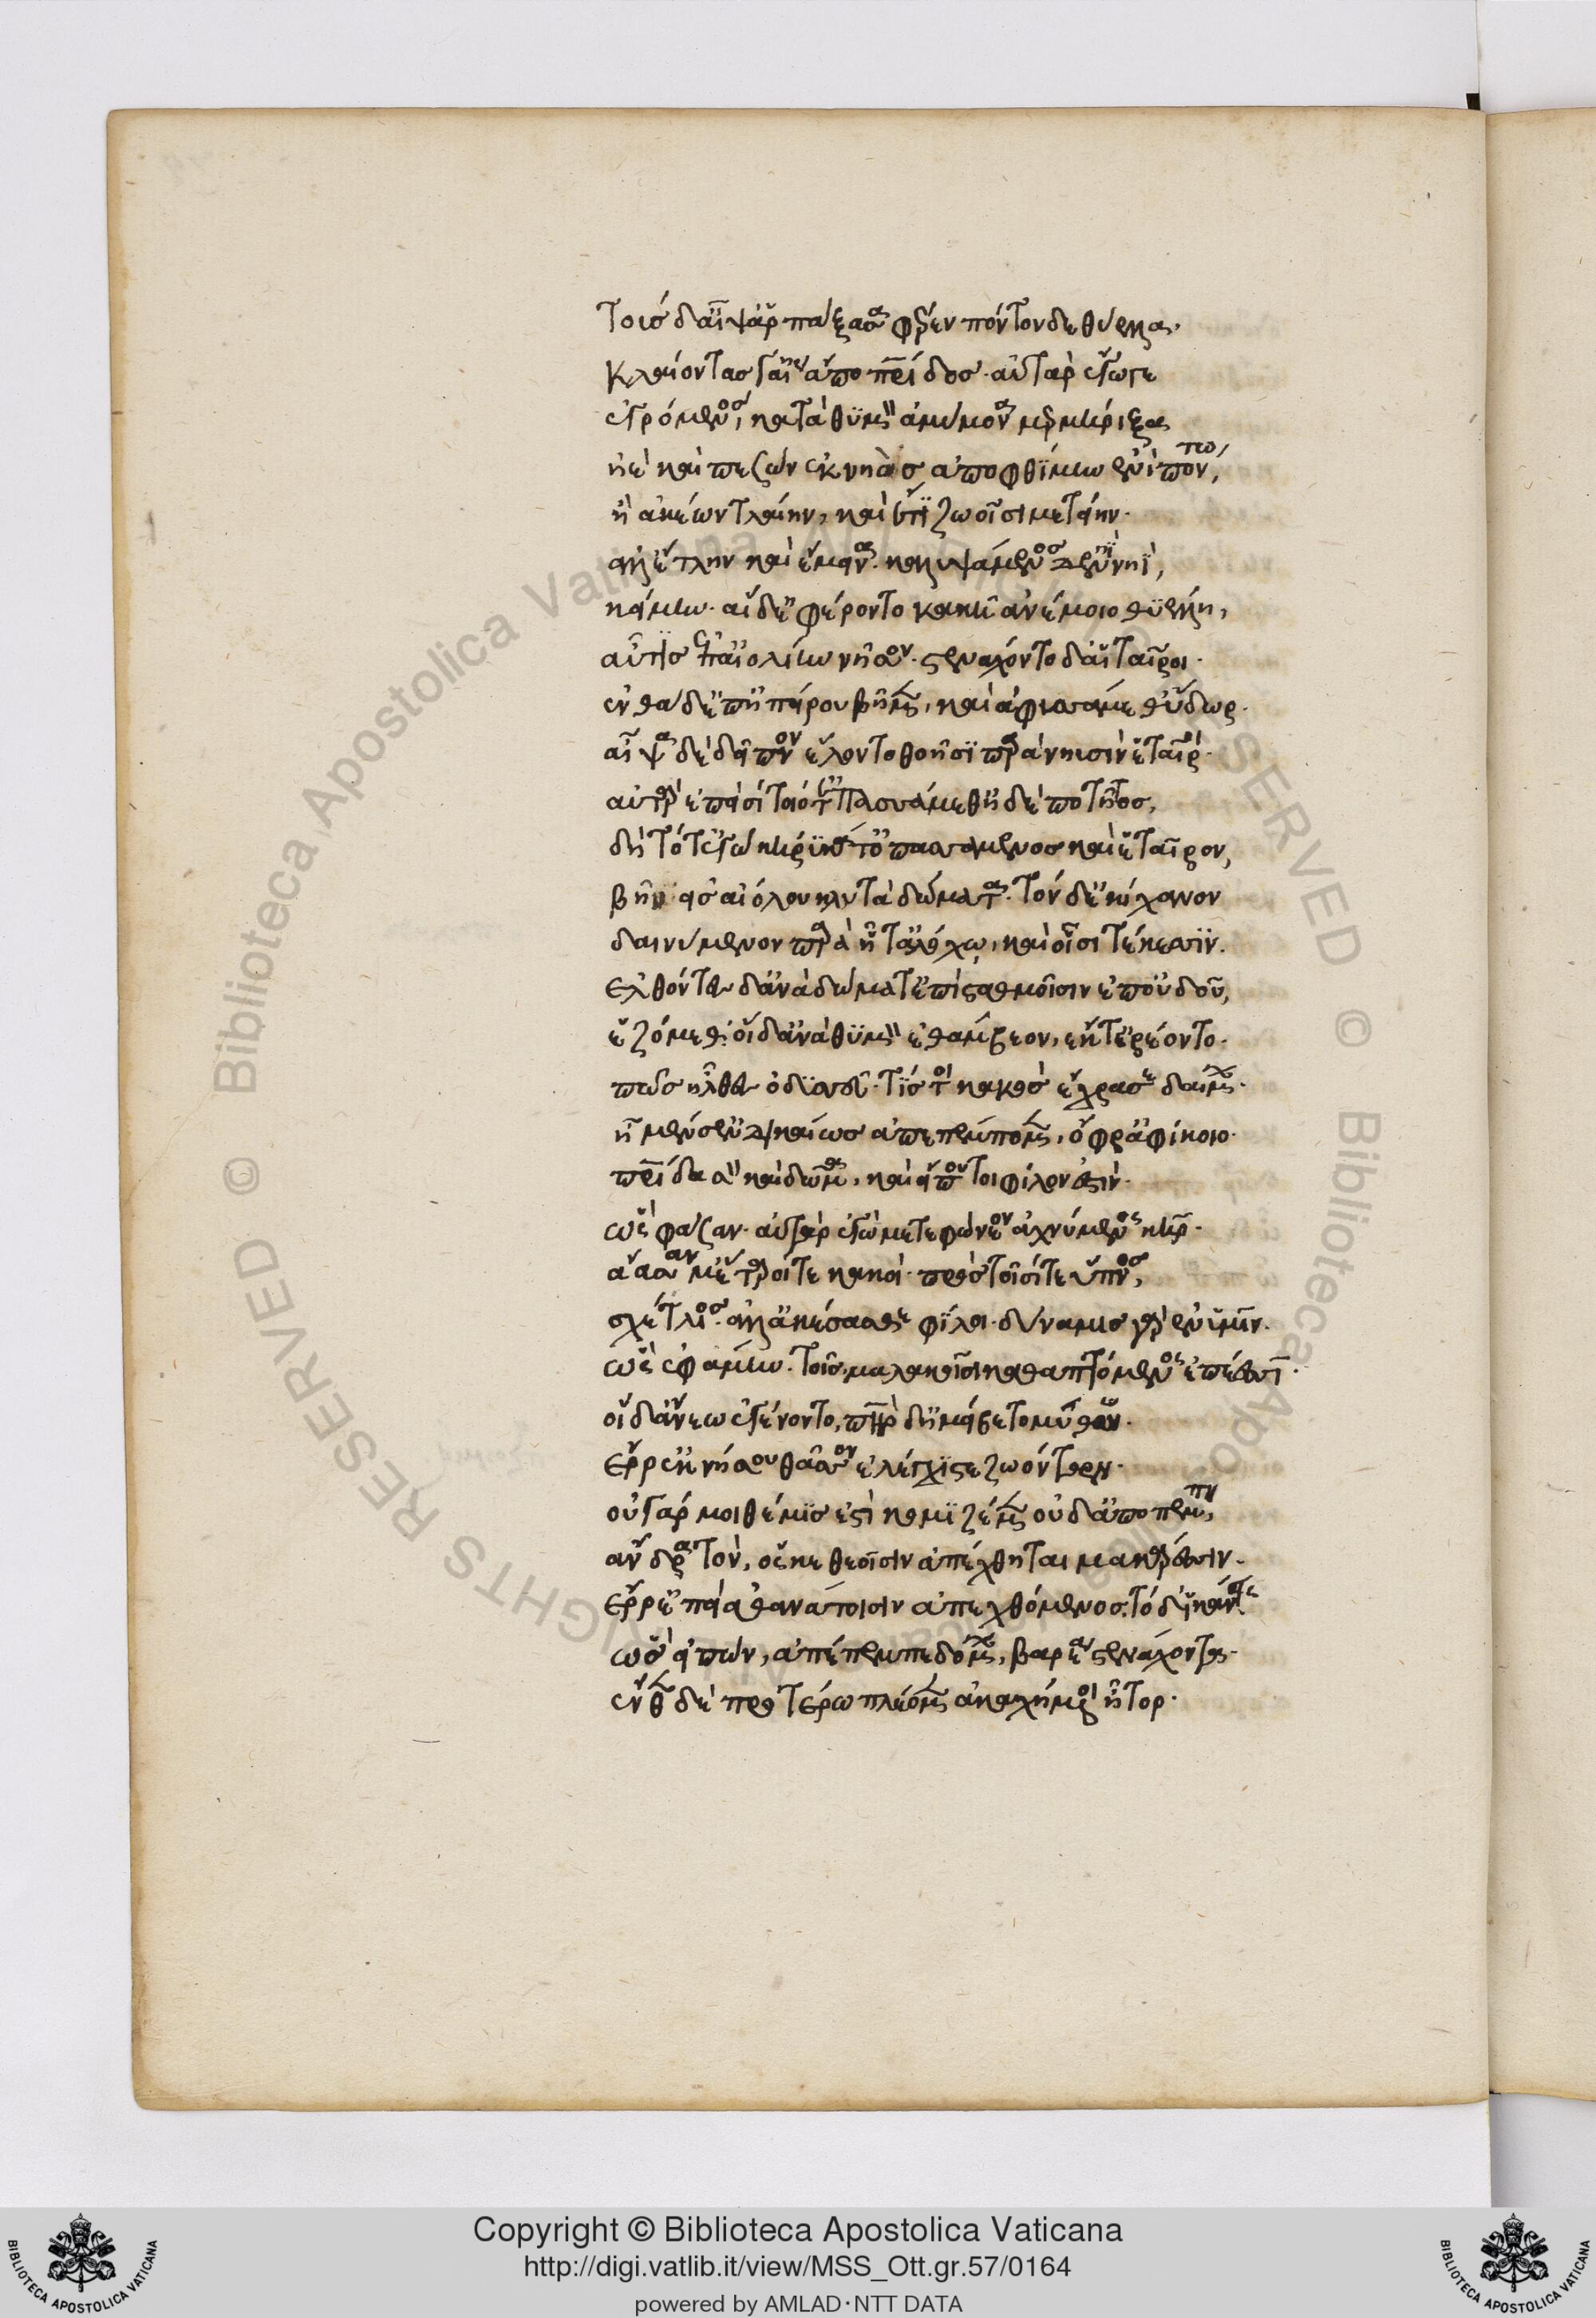 τοὺσ δ' αἶψ' ἁρπάξασα φέρεν πόντον δὲ θύελλα.
κλαίοντας γαίησ ἄπο πατρίδοσ. αὐτὰρ ἔγωγε
ἐγρόμενοσ, κατὰ θυμὸν ἀμύμονα μερμήριξα
ἠὲ καὶ πεζὼν ἐκ νηὸσ ἀποφθίμην ἐνὶ πόντω,
ἢ ἀκέων τλαίην, καὶ ἔτι ζωοῖσι μετείην.
ἀλλ' ἔτλην καὶ ἔμεινα. καλυψάμενοσ δ' ἐνὶ νηῒ,
κείμην. αἱ δ' ἐφέροντο κακῆ ἀνέμοιο θυέλλη,
αὖτισ ἐπ' αἰολίην νῆσον. στενάχοντο δ' ἑταῖροι.
ἔνθα δ' ἐπ' ἠπείρου βῆμεν, καὶ ἀφυσσάμεθ' ὕδωρ.
αἶψα δὲ δεῖπνον ἕλοντο θοῇσι παρὰ νηυσὶν ἑταῖροι.
αὐτὰρ ἐπεὶ σίτοιό τ' ἐπασσάμεθ' ἠδὲ ποτῆτοσ,
δὴ τότ' ἐγὼ κήρυκά τ' ὀπασσάμενοσ καὶ ἑταῖρον,
βῆν εἰσ αἰόλου κλυτὰ δώματα. τὸν δ' ἐκίχανον
δαινύμενον παρὰ ᾗ τ' ἀλόχω, καὶ οἷσι τέκεσσιν.
ἐλθόντεσ δ' ἀνὰ δώματ' ἐπὶ σταθμοῖσιν ἐπ' οὐδοῦ,
ἑζόμεθ'. οἱ δ' ἀνὰ θυμὸν ἐθάμβεον, ἔκ τ' ἐρέοντο.
πῶσ ἦλθεσ ὀδυσσεῦ. τίσ τοι κακὸσ ἔχραε δαίμων.
ἦ μέν σ' ἐνδυκέωσ ἀπεπέμπομεν, ὄφρ' ἀφίκοιο
πατρίδα σὴν καὶ δῶμα, καὶ εἴ που τοι φίλον ἐστίν.
ὣσ φάσαν. αὐτὰρ ἐγὼ μετεφώνεον ἀχνύμενοσ κῆρ.
ἄασάν μ' ἕταροί τε κακοὶ. πρὸσ τοῖσί τε ὕπνοσ,
σχέτλιοσ. ἀλλ' ἀκέσασθε φίλοι. δύναμισ γὰρ ἐν ὑμῖν.
ὣσ ἐφάμην. τοῖσ, μαλακοῖσι καθαπτόμενοσ ἐπέεσσι.
οἱ δ' ἄνεω ἐγένοντο, πατὴρ δ' ἠμείβετο μύθω.
ἔρρ' ἐκ νήσου θᾶσσον ἐλέγχιστε ζωόντων.
οὐ γάρ μοι θέμισ ἐστὶ κομιζέμεν οὐδ' ἀποπέμπειν,
ἄνδρα τὸν, ὅς κε θεοῖσιν ἀπέχθηται μακάρεσσιν.
ἔρρ' ἐπεὶ ἀθανάτοισιν ἀπεχθόμενοσ τόδ' ἱκάνεισ.
ὣσ εἰπὼν, ἀπέπεμπε δόμων, βαρέα στενάχοντα.
ἔνθεν δὲ προτέρω πλέομεν ἀκαχήμενοι ἦτορ.
Copyright © Biblioteca Apostolica Vaticana
http://digi.vatlib.it/view/MSS_Ott.gr.57/0164
powered by AMLAD·NTT DATA